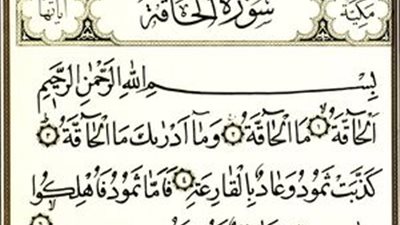 مكية سورة الحاقة آياتها
بِسْمِ اللهِ الرَّحْمٰنِ الرَّحِيمِ
اَلْحَاقَّةُ ١ مَا الْحَاقَّةُ ٢ وَمَا اَدْرٰيكَ مَا الْحَاقَّةُ ٣
كَذَّبَتْ ثَمُودُ وَعَادٌ بِالْقَارِعَةِ ٤ فَاَمَّا ثَمُودُ فَاُهْلِكُوا